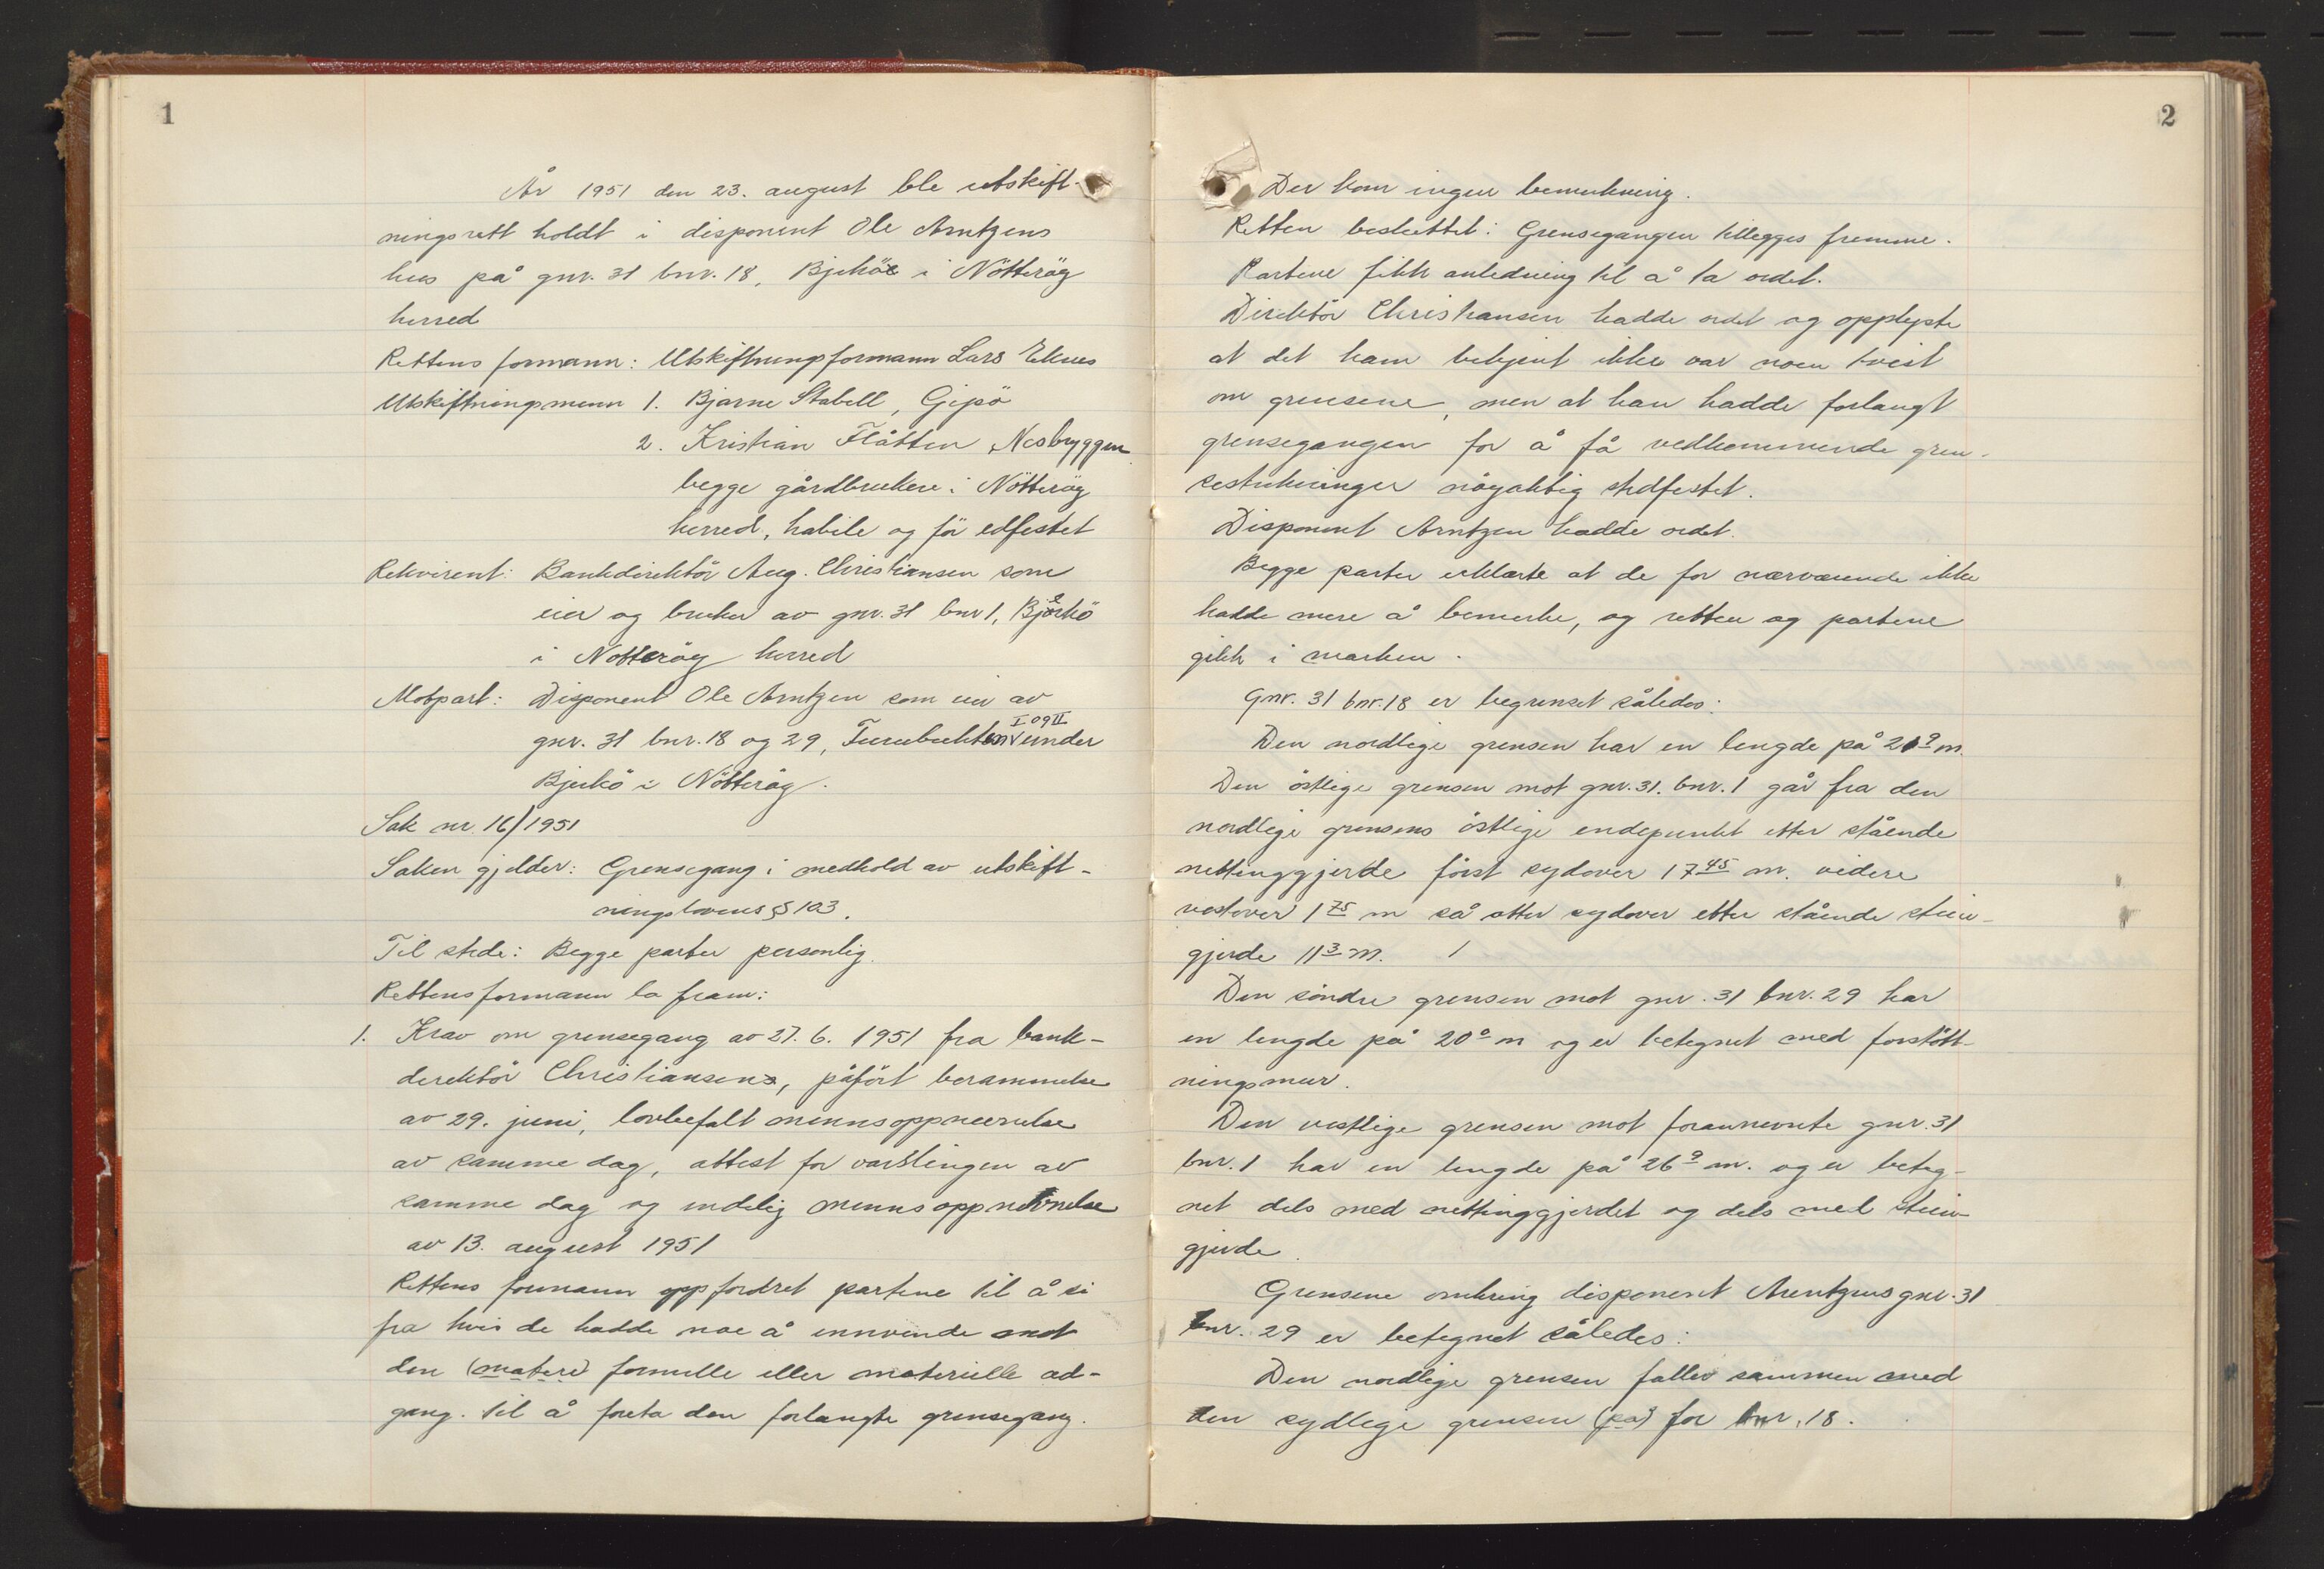 1
År 1951 den 23. august ble utskift-
ningsrett holdt i disponent Ole Arntzens
hus på gnr. 31 bnr. 18, Bjerkö i Nötteröy
herred
Rettens formann: Utskiftningsformann Lars Eknes
Utskiftningsmenn 1. Bjarne Stabell, Gipö
2. Kristian Flåtten Nesbryggen
begge gårdbrukere i Nötteröy
herred, habile og för edfestet
Rekvirent: Bankdirektör Aug. Christiansen som
eier og bruker av gnr. 31 bnr 1, Bjerkö
i Nötteröy herred
Motpart: Disponent Ole Arntzen som eier av
gnr. 31 bnr. 18 og 29, Furubukten I og II under
Bjerkö i Nötteröy.
Sak nr. 16/1951
Saken gjelder: Grensegang i medhold av utskift-
ningslovens § 103.
Til stede: Begge parter personlig.
Rettens formann la fram:
1. Krav om grensegang av 27. 6. 1951 fra bank-
direktör Christiansen, påfört berammelse
av 29. juni, lovbefalt mennsoppnevnelse
av samme dag, attest for varslingen av
samme dag og endelig mennsoppnevnelse
av 13. august 1951
Rettens formann oppfordret partene til å si
fra hvis de hadde noe å innvende mot
den (matere) formelle eller materielle ad-
gang. til å foreta den forlangte grensegang.
2
Der kom ingen bemerkning.
Retten besluttet: Grensegangen tillegges fremme.
Partene fikk anledning til å ta ordet.
Direktör Christiansen hadde ordet og opplyste
at det ham bekjent ikke var noen tvist
om grensene, men at han hadde forlangt
grensegangen for å få vedkommende gren-
sestrekninger nöyaktig stedfestet.
Disponent Arntzen hadde ordet.
Begge parter erklærte at de for nærværende ikke
hadde mere å bemerke, og retten og partene
gikk i marken.
Gnr. 31 bnr. 18 er begrenset således:
Den nordlige grensen har en lengde på 21⁹ m.
Den östlige grensen mot gnr. 31. bnr. 1 går fra den
nordlige grensens östlige endepunkt etter stående
nettinggjerde först sydover 17⁴⁵ m. videre
vestover 1⁷⁵ m så atter sydover etter stående stein-
gjerde 11³ m.
Den söndre grensen mot gnr. 31 bnr. 29 har
en lengde på 20⁰ m og er betegnet med forstött-
ningsmur.
Den vestlige grensen mot forannevnte gnr. 31
bnr. 1 har en lengde på 26⁹ m. og er beteg-
net dels med nettinggjerdet og dels med stein-
gjerde.
Grensene omkring disponent Arentzens gnr. 31
bnr. 29 er betegnet således:
Den nordlige grensen faller sammen med
den sydlige grensen (på) for bnr. 18.